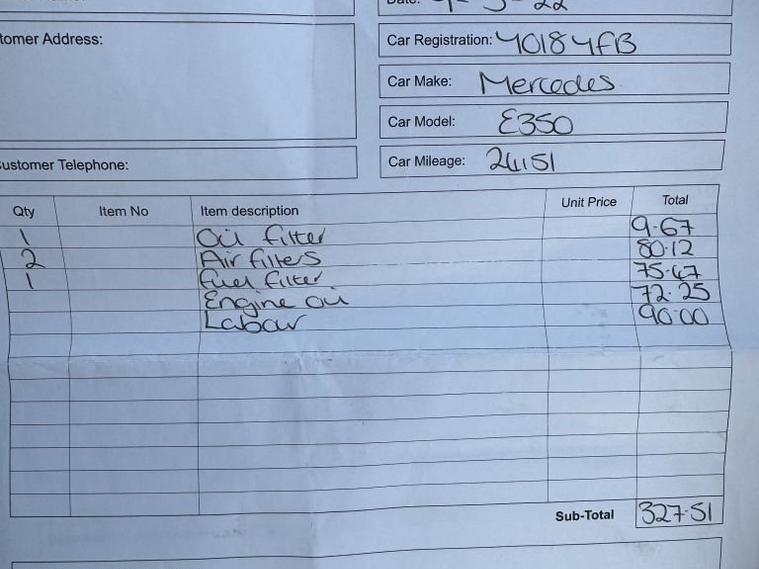 Date: 4-3-22
tomer Address:
Car Registration: YO18YFB
Car Make: Mercedes
Car Model: E350
ustomer Telephone:
Car Mileage: 24151
Qty Item No Item description Unit Price Total
1 Oil filter 9.67
2 Air filters 80.12
1 fuel filter 75.47
Engine oil 72.25
Labour 90.00
Sub-Total 327.51